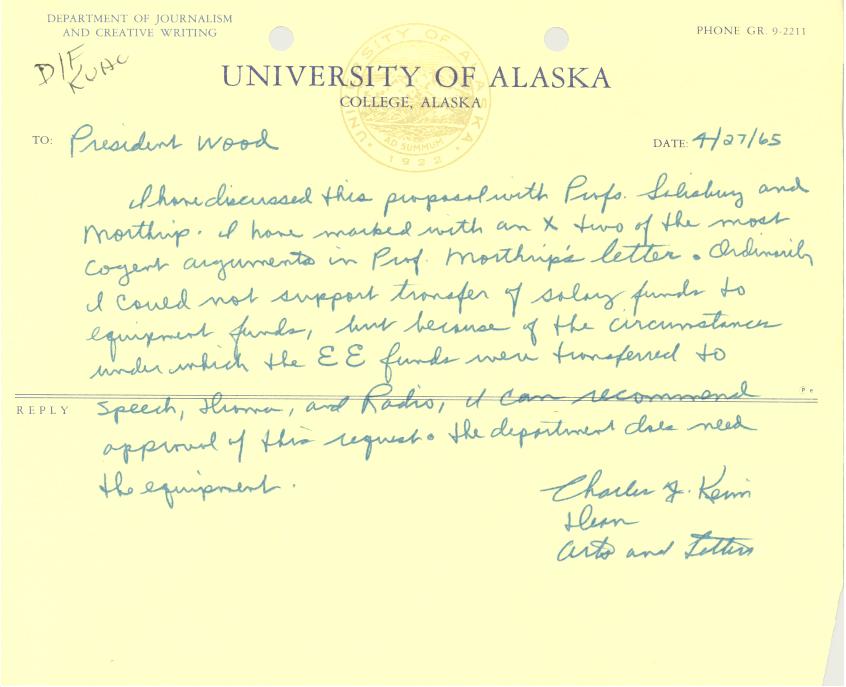 DEPARTMENT OF JOURNALISM
AND CREATIVE WRITING
PHONE GR. 9-2211
D/F
KUAC
UNIVERSITY OF ALASKA
COLLEGE, ALASKA
UNIVERSITY OF ALASKA
AD SUMMUM
1922
TO: President Wood
DATE: 4/27/65
I have discussed this proposal with Profs. Salisbury and
Northrip. I have marked with an X two of the most
cogent arguments in Prof. Northrip's letter. Ordinarily
I could not support transfer of salary funds to
equipment funds, but because of the circumstances
under which the EE funds were transferred to
REPLY
Speech, Drama, and Radio, I can recommend
approval of this request. The department does need
the equipment.
Charles J. Keim
Dean
Arts and Letters